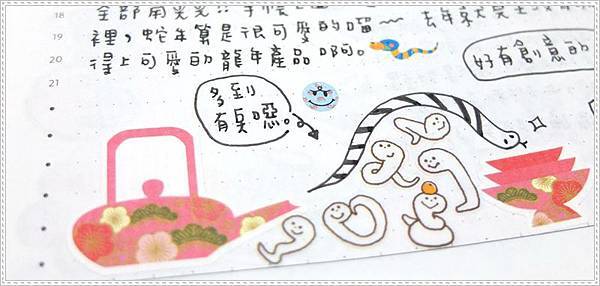 18
全部用光光!! 手帳
去年就是
19
裡，蛇年算是很可愛的喔~~
20
得上可愛的龍年產品啊。
好有創意的
21
多到
有奌噁。